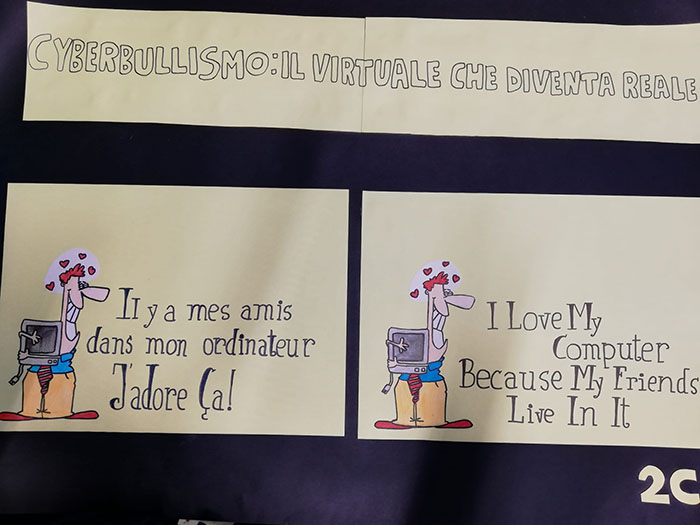 CYBERBULLISMO: IL VIRTUALE CHE DIVENTA REALE
Il y a mes amis
dans mon ordinateur
J'adore Ça!
I Love My
Computer
Because My Friends
Live In It
2C